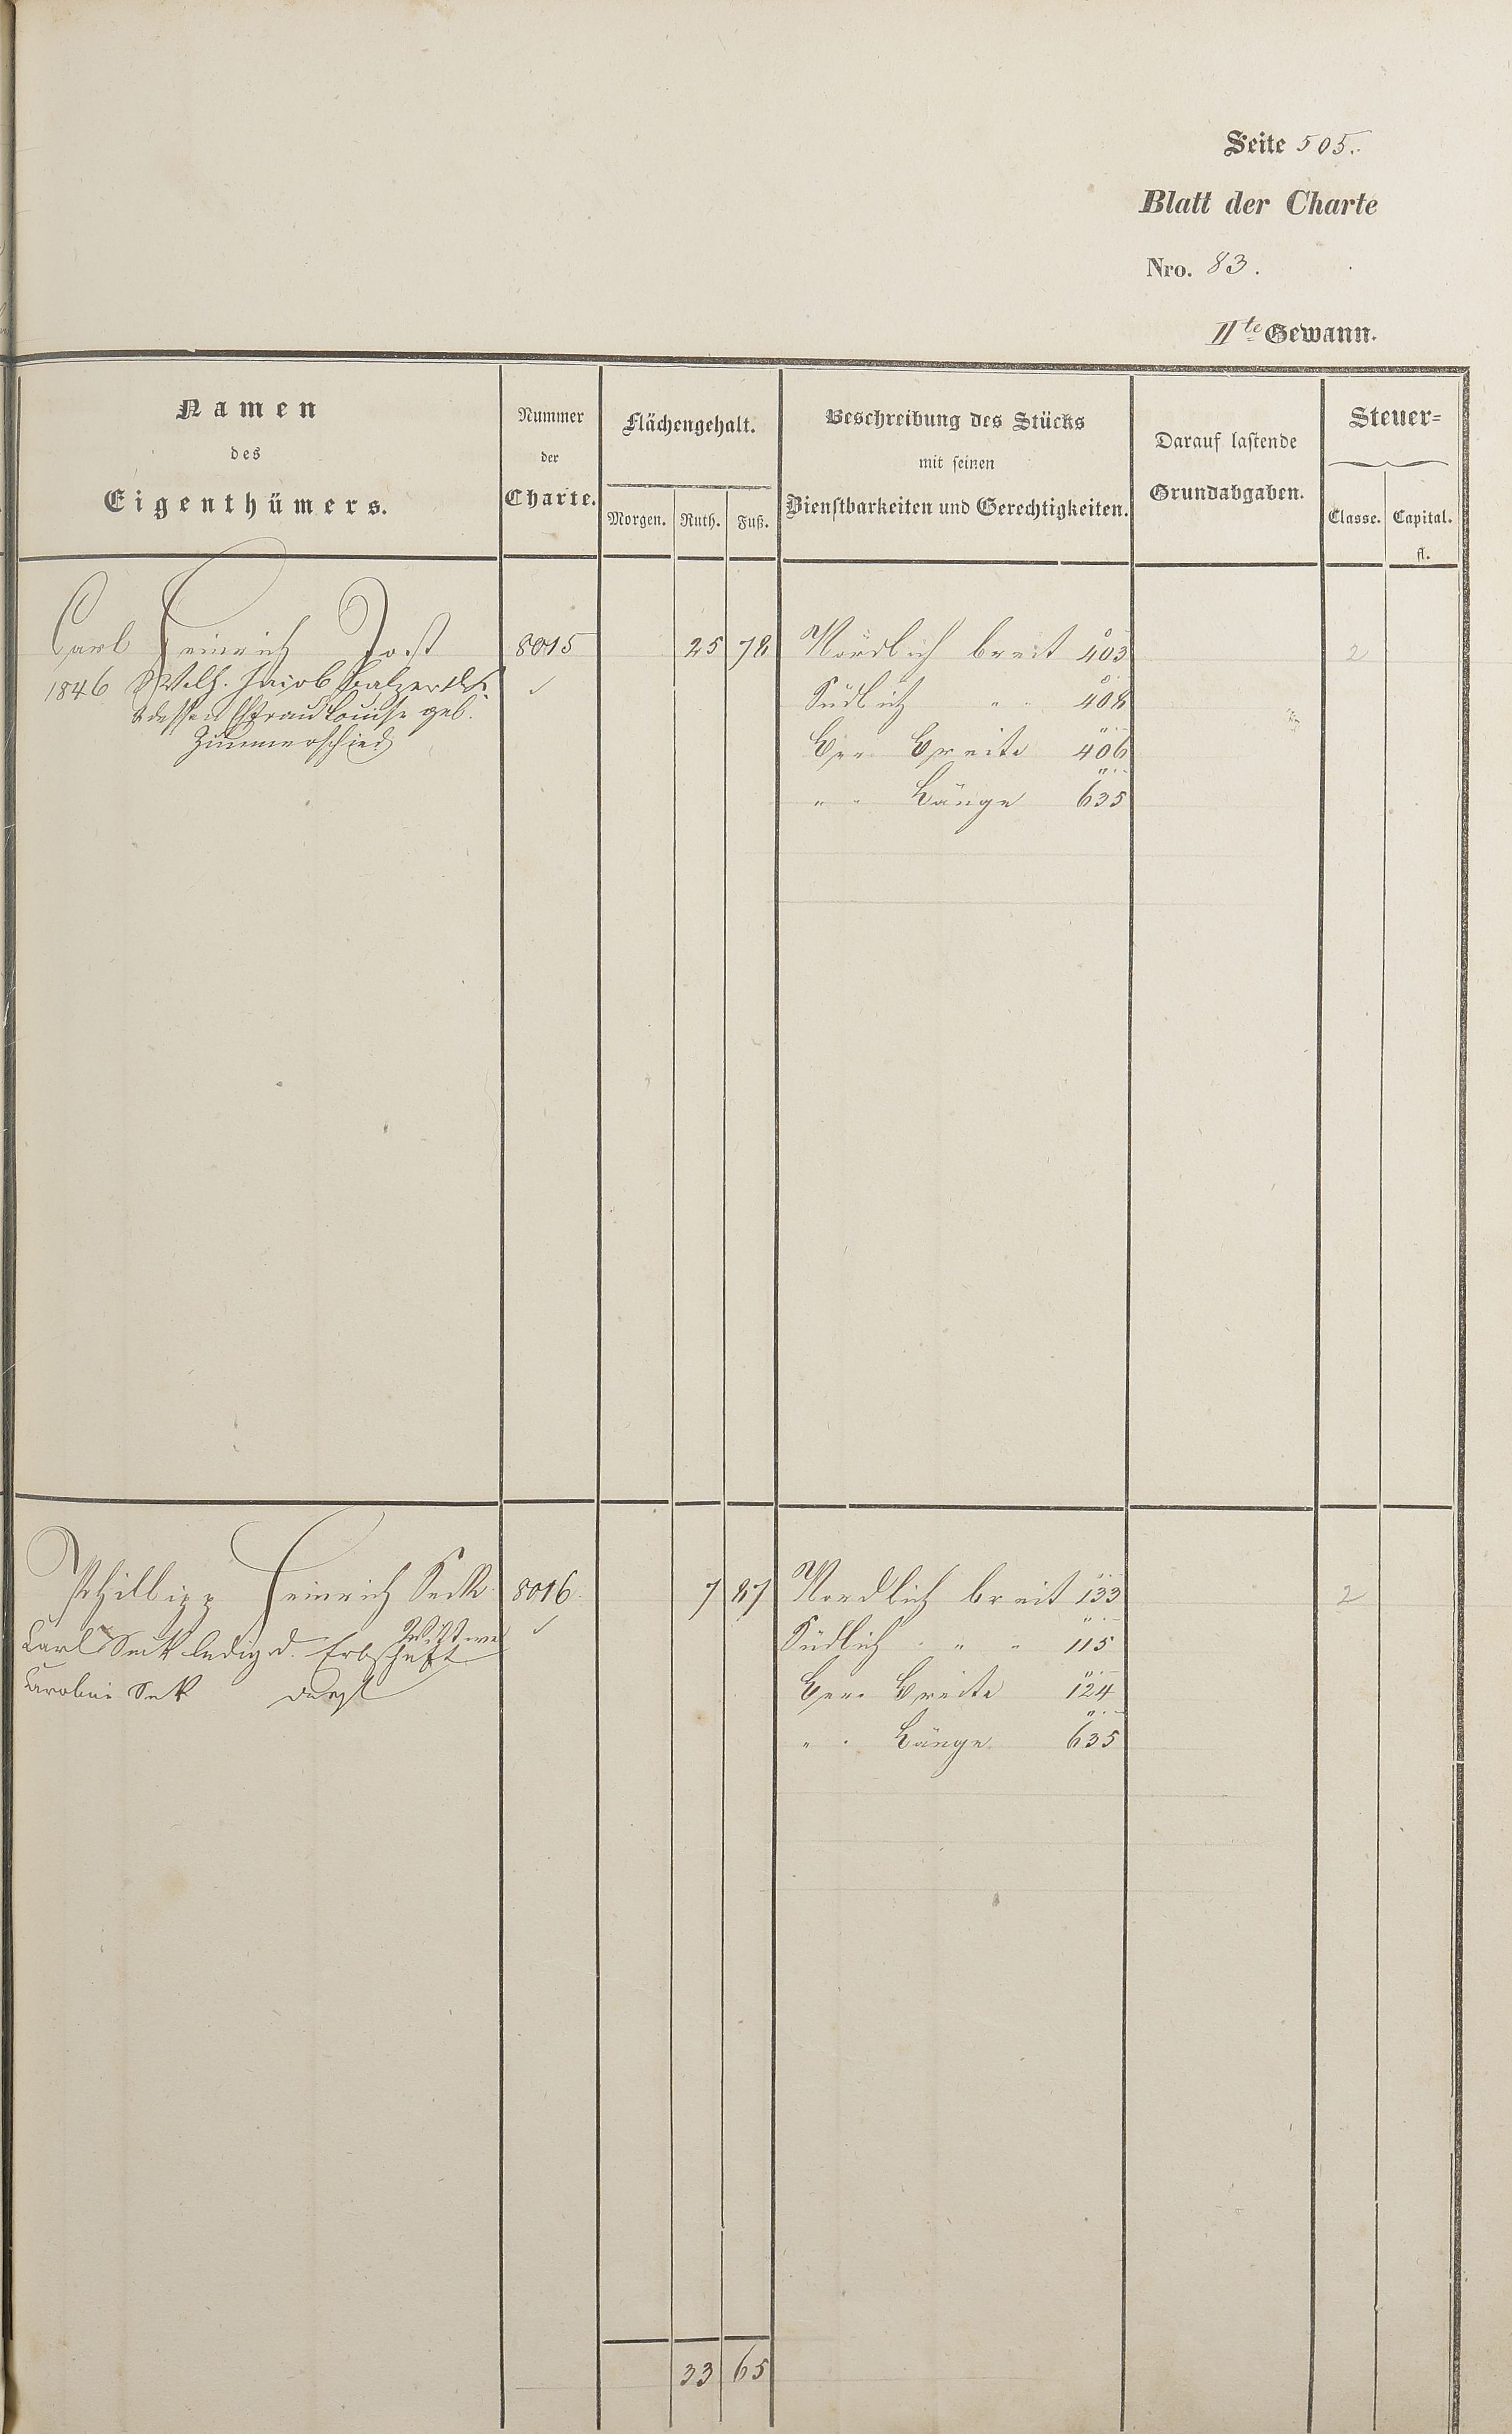 Seite 505.
Blatt der Charte
Nro. 83.
IIte Gewann.
Namen
des
Eigenthümers.
Nummer
der
Charte.
Flächengehalt.
Morgen. Ruth. Fuß.
Beschreibung des Stücks
mit seinen
Dienstbarkeiten und Gerechtigkeiten.
Darauf lastende
Grundabgaben.
Steuer=
Classe. Capital.
fl.
Carl Heinrich Jost 8015 25 78 Nördlich breit 403 2
1846 Wilh. Jacob Balzer
Südlich " " 408
& dessen Ehefrau Louise geb.
Zimmerschied
Ger. Breite 406
" " Länge 635
Philipp Heinrich Seck 8016 7 87 Nordlich breit 133 2
Wittwe
Carl Seck ledig d. Erbschaft
Südlich " " 115
Caroline Seck desgl
Ger. Breite 124
" " Länge 635
33 65